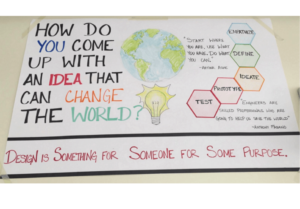 HOW DO
YOU COME
UP WITH
AN IDEA THAT
CAN CHANGE
THE WORLD?
"START WHERE
YOU ARE, USE WHAT
YOU HAVE, DO WHAT
YOU CAN."
DEFINE
IDEATE
PROTOTYPE
TEST
"ENGINEERS ARE
SKILLED PROFESSIONALS WHO ARE
GOING TO HELP US SAVE THE WORLD"
DESIGN IS SOMETHING FOR SOMEONE FOR SOME PURPOSE.